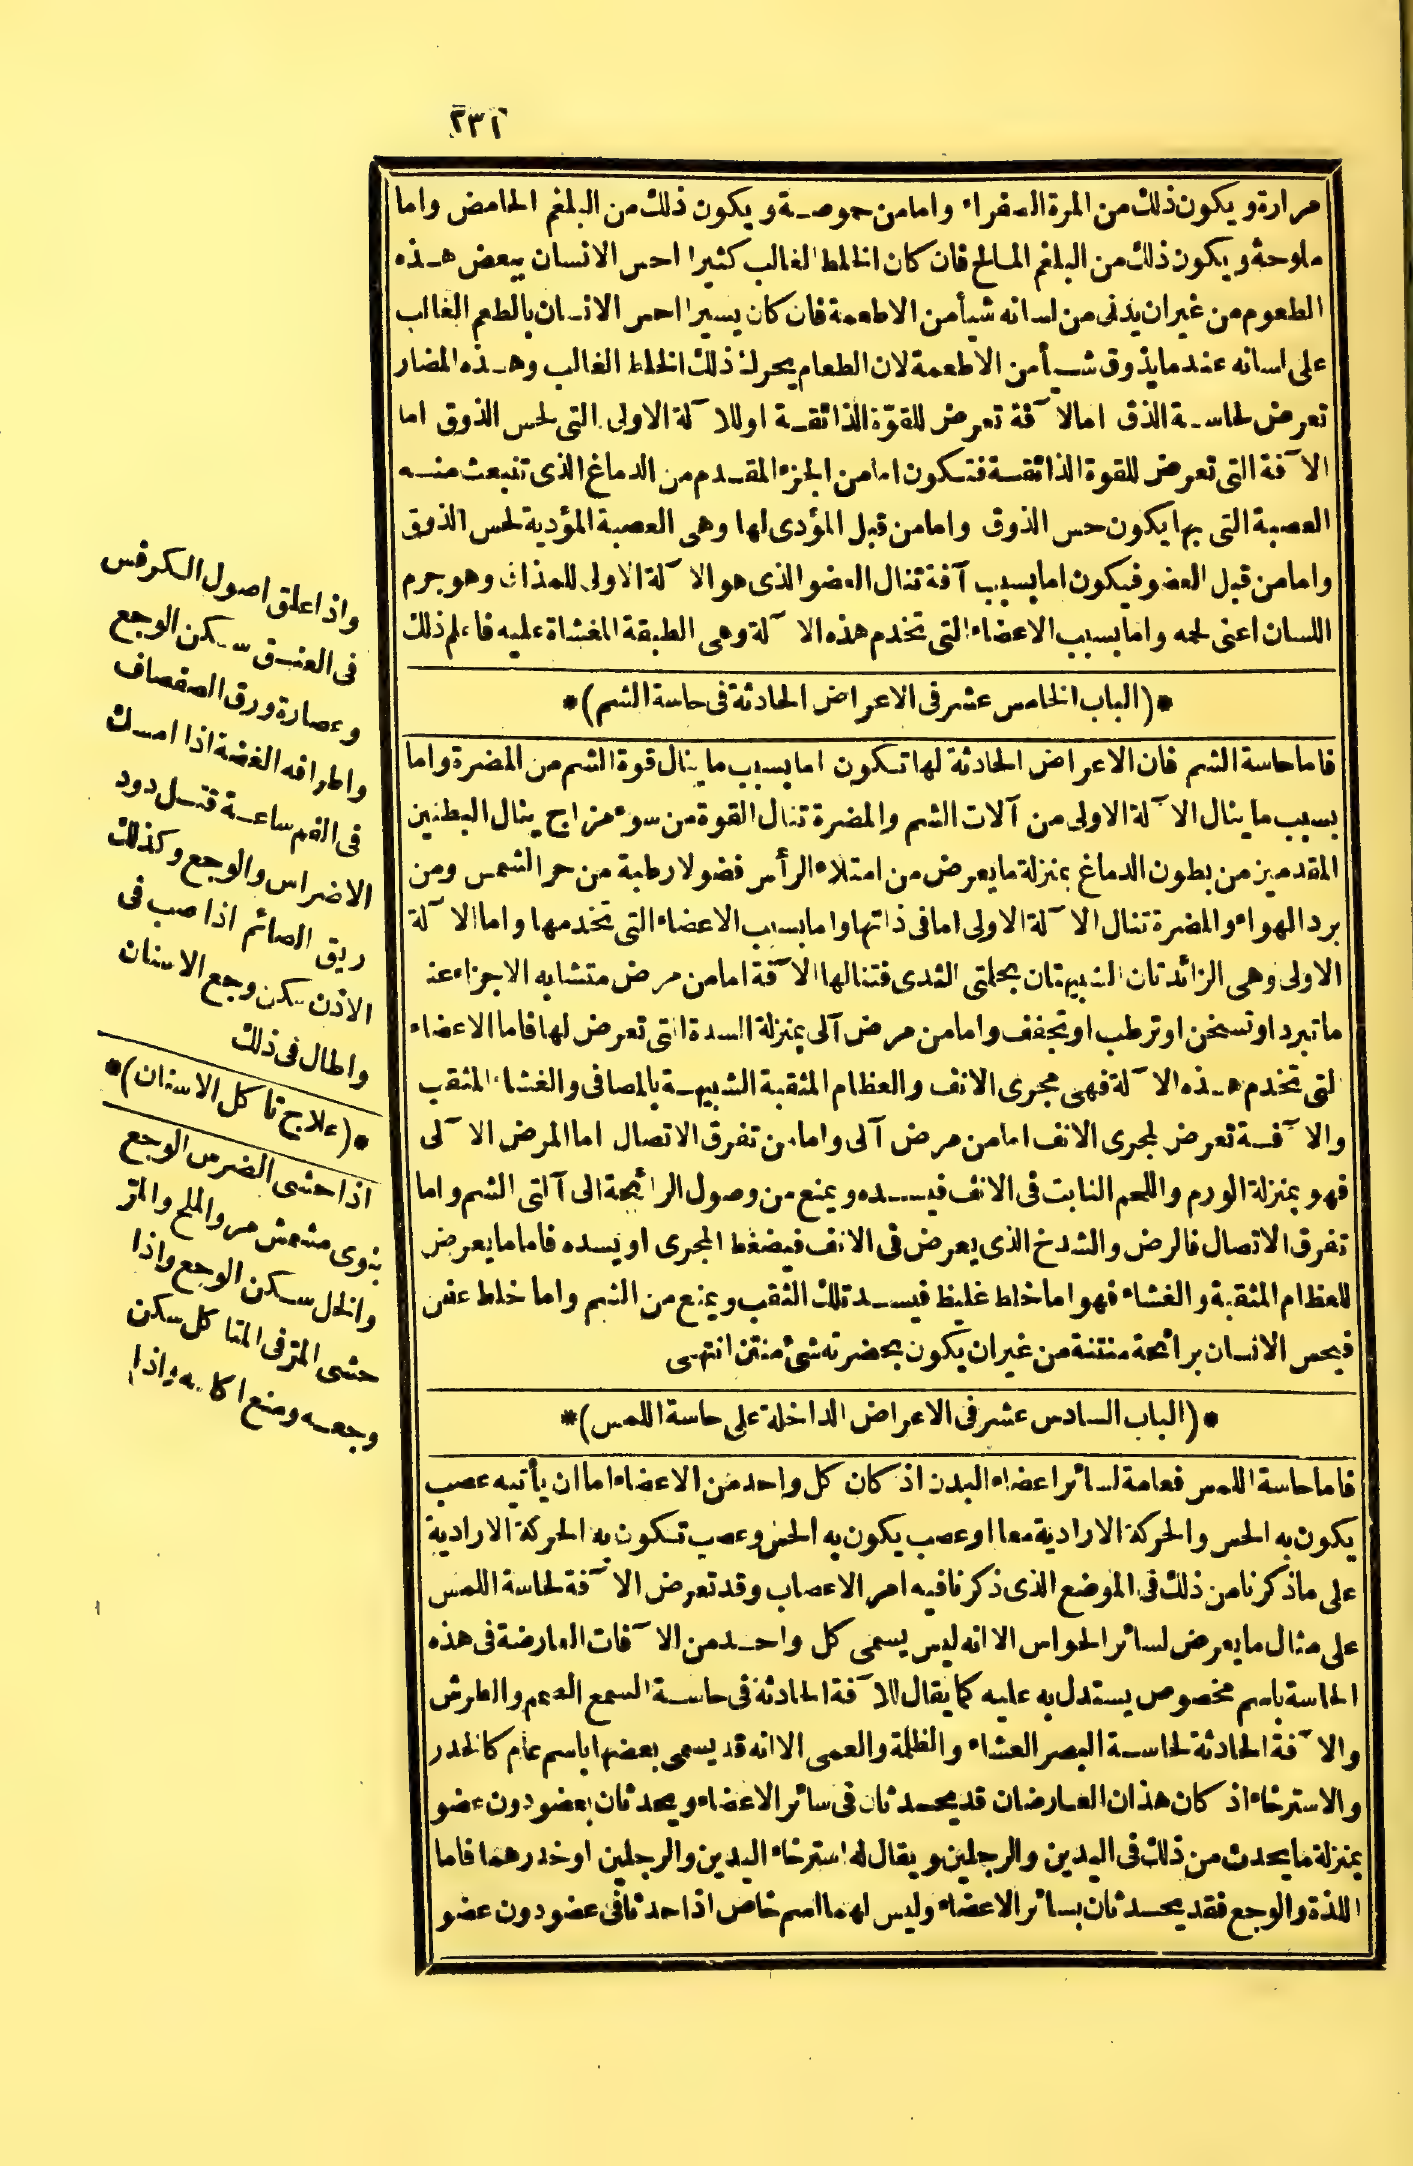 ٢٣١
مرارة ويكون ذلك من المرة الصفراء واما من حموضة ويكون ذلك من البلغم الحامض واما
ملوحة ويكون ذلك من البلغم المالح فان كان الخلط الغالب كثيرا احس الانسان ببعض هذه
الطعوم من غير ان يدنى من لسانه شيأ من الاطعمة فان كان يسيرا احس الانسان بالطعم الغالب
على لسانه عند ما يذوق شيأ من الاطعمة لان الطعام يحرك ذلك الخلط الغالب وهذه المضار
تعرض لحاسة الذق اما لآفة تعرض للقوّة الذائقة او للآلة الاولى التى لحس الذوق اما
الآفة التى تعرض للقوة الذائقة فتكون اما من الجزء المقدم من الدماغ الذى تنبعث منه
العصبة التى بها يكون حس الذوق واما من قبل المؤدى لها وهى العصبة المؤدية لحس الذوق
واما من قبل العضو فيكون اما بسبب آفة تنال العضو الذى هو الآلة الاولى للمذاق وهو جرم
اللسان اعنى لحمه واما بسبب الاعضاء التى تخدم هذه الآلة وهى الطبقة المغشاة عليه فاعلم ذلك
*(الباب الخامس عشر فى الاعراض الحادثة فى حاسة الشم)*
فاما حاسة الشم فان الاعراض الحادثة لها تكون اما بسبب ما ينال قوة الشم من المضرة واما
بسبب ما ينال الآلة الاولى من آلات الشم والمضرة تنال القوة من سوء مزاج ينال البطنين
المقدمين من بطون الدماغ بمنزلة ما يعرض من امتلاء الرأس فضولا رطبة من حر الشمس ومن
برد الهواء والمضرة تنال الآلة الاولى اما فى ذاتها واما بسبب الاعضاء التى تخدمها واما الآلة
الاولى وهى الزائدتان الشبيهتان بحلمتى الثدى فتنالها الآفة اما من مرض متشابه الاجزاء عند
ما تبرد او تسخن او ترطب او تجفف واما من مرض آلى بمنزلة السدة التى تعرض لها فاما الاعضاء
التى تخدم هذه الآلة فهى مجرى الانف والعظام المثقبة الشبيهة بالمصافى والغشاء المثقب
والآفة تعرض لمجرى الانف اما من مرض آلى واما من تفرق الاتصال اما المرض الآلى
فهو بمنزلة الورم واللحم النابت فى الانف فيسده ويمنع من وصول الرائحة الى آلتى الشم واما
تفرق الاتصال فالرض والشدخ الذى يعرض فى الانف فيضغط المجرى او يسده فاما ما يعرض
للعظام المثقبة والغشاء فهو اما خلط غليظ فيسد تلك الثقب ويمنع من الشم واما خلط عفن
فيحس الانسان برائحة منتنة من غير ان يكون بحضرته شئ منتن انتهى
*(الباب السادس عشر فى الاعراض الداخلة على حاسة اللمس)*
فاما حاسة اللمس فعامة لسائر اعضاء البدن اذ كان كل واحد من الاعضاء اما ان يأتيه عصب
يكون به الحس والحركة الارادية معا او عصب يكون به الحس وعصب تكون به الحركة الارادية
على ما ذكرنا من ذلك فى الموضع الذى ذكرنا فيه امر الاعصاب وقد تعرض الآفة لحاسة اللمس
على مثال ما يعرض لسائر الحواس الا انه ليس يسمى كل واحد من الآفات العارضة فى هذه
الحاسة باسم مخصوص يستدل به عليه كما يقال للآفة الحادثة فى حاسة السمع الصمم والطرش
والآفة الحادثة لحاسة البصر العشاء والظلمة والعمى الا انه قد يسمى بعضها باسم عام كالخدر
والاسترخاء اذ كان هذان العارضان قد يحدثان فى سائر الاعضاء ويحدثان بعضو دون عضو
بمنزلة ما يحدث من ذلك فى اليدين والرجلين ويقال له استرخاء اليدين والرجلين او خدرهما فاما
اللذة والوجع فقد يحدثان بسائر الاعضاء وليس لهما اسم خاص اذا حدثا فى عضو دون عضو
واذا علق اصول الكرفس
فى العنق سكن الوجع
وعصارة ورق الصفصاف
واطرافه الغضة اذا امسك
فى الفم ساعة قتل دود
الاضراس والوجع وكذلك
ريق الصائم اذا صب فى
الاذن سكن وجع الاسنان
واطال فى ذلك
*(علاج تاكل الاسنان)*
اذا حشى الضرس الوجع
بنوى مشمش مر والملح والمر
والخل سكن الوجع واذا
حشى المر فى المتاكل سكن
وجعه ومنع اكله واذا